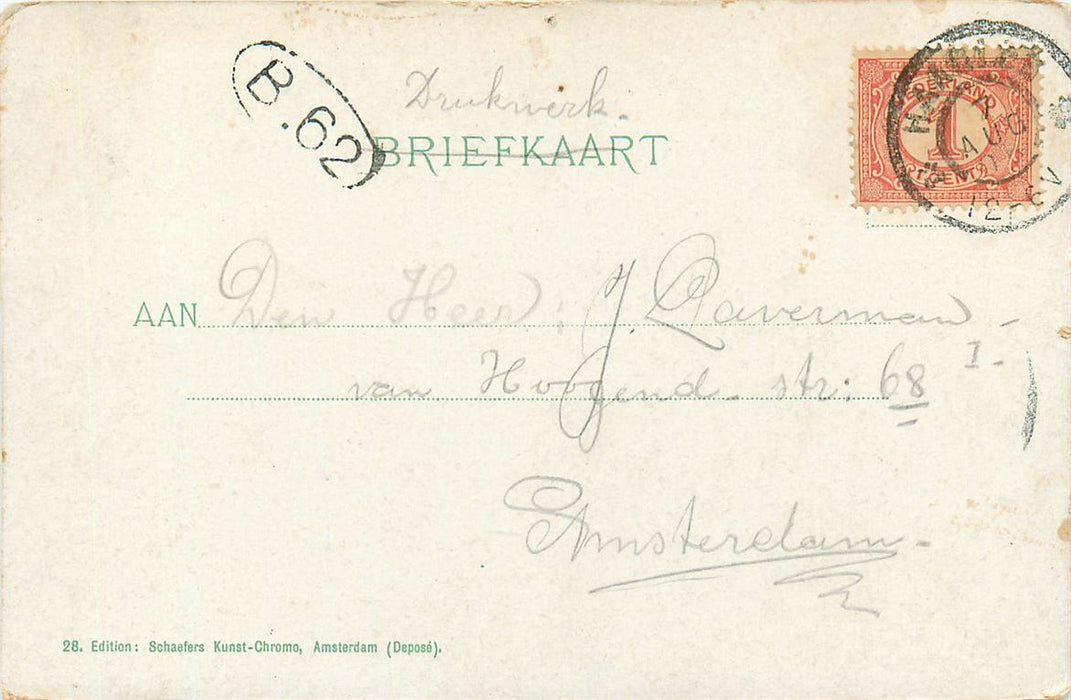 B.62
Drukwerk.
BRIEFKAART
HAARLEM
AUG
12-6V
1
CENT
AAN Den Heer: J. Laverman -
van Hoogend. str: 68 I-
Amsterdam -
28. Edition: Schaefers Kunst-Chromo, Amsterdam (Deposé).